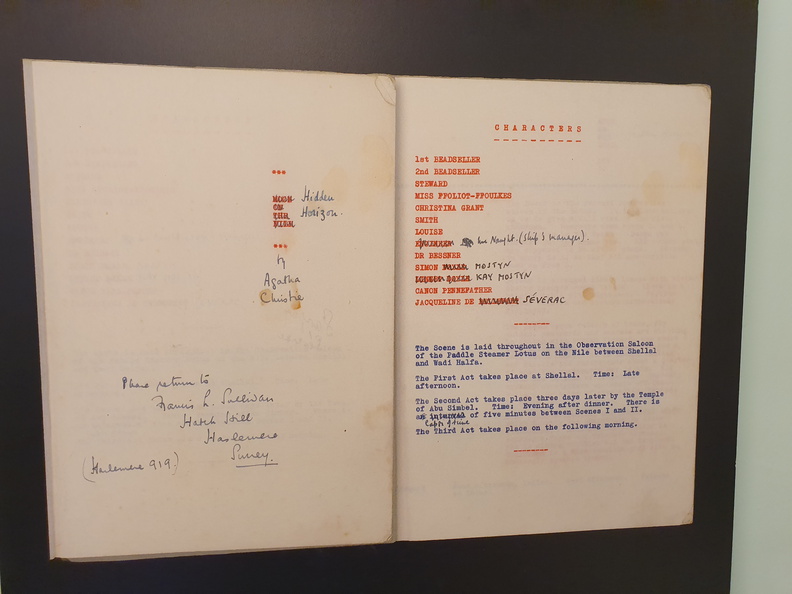 Hidden
Horizon.
MOON
ON
THE
NILE
by
Agatha
Christie
Please return to
Francis L. Sullivan
Hatch Hill
Haslemere
Surrey.
(Haslemere 919.)
CHARACTERS
1st BEADSELLER
2nd BEADSELLER
STEWARD
MISS FFOLIOT-FFOULKES
CHRISTINA GRANT
SMITH
LOUISE
Mc Naught. (Ship's Manager).
DR BESSNER
SIMON MOSTYN
KAY MOSTYN
CANON PENNEFATHER
JACQUELINE DE SÉVERAC
The Scene is laid throughout in the Observation Saloon
of the Paddle Steamer Lotus on the Nile between Shellal
and Wadi Halfa.
The First Act takes place at Shellal. Time: Late
afternoon.
The Second Act takes place three days later by the Temple
of Abu Simbel. Time: Evening after dinner. There is
of five minutes between Scenes I and II.
The Third Act takes place on the following morning.